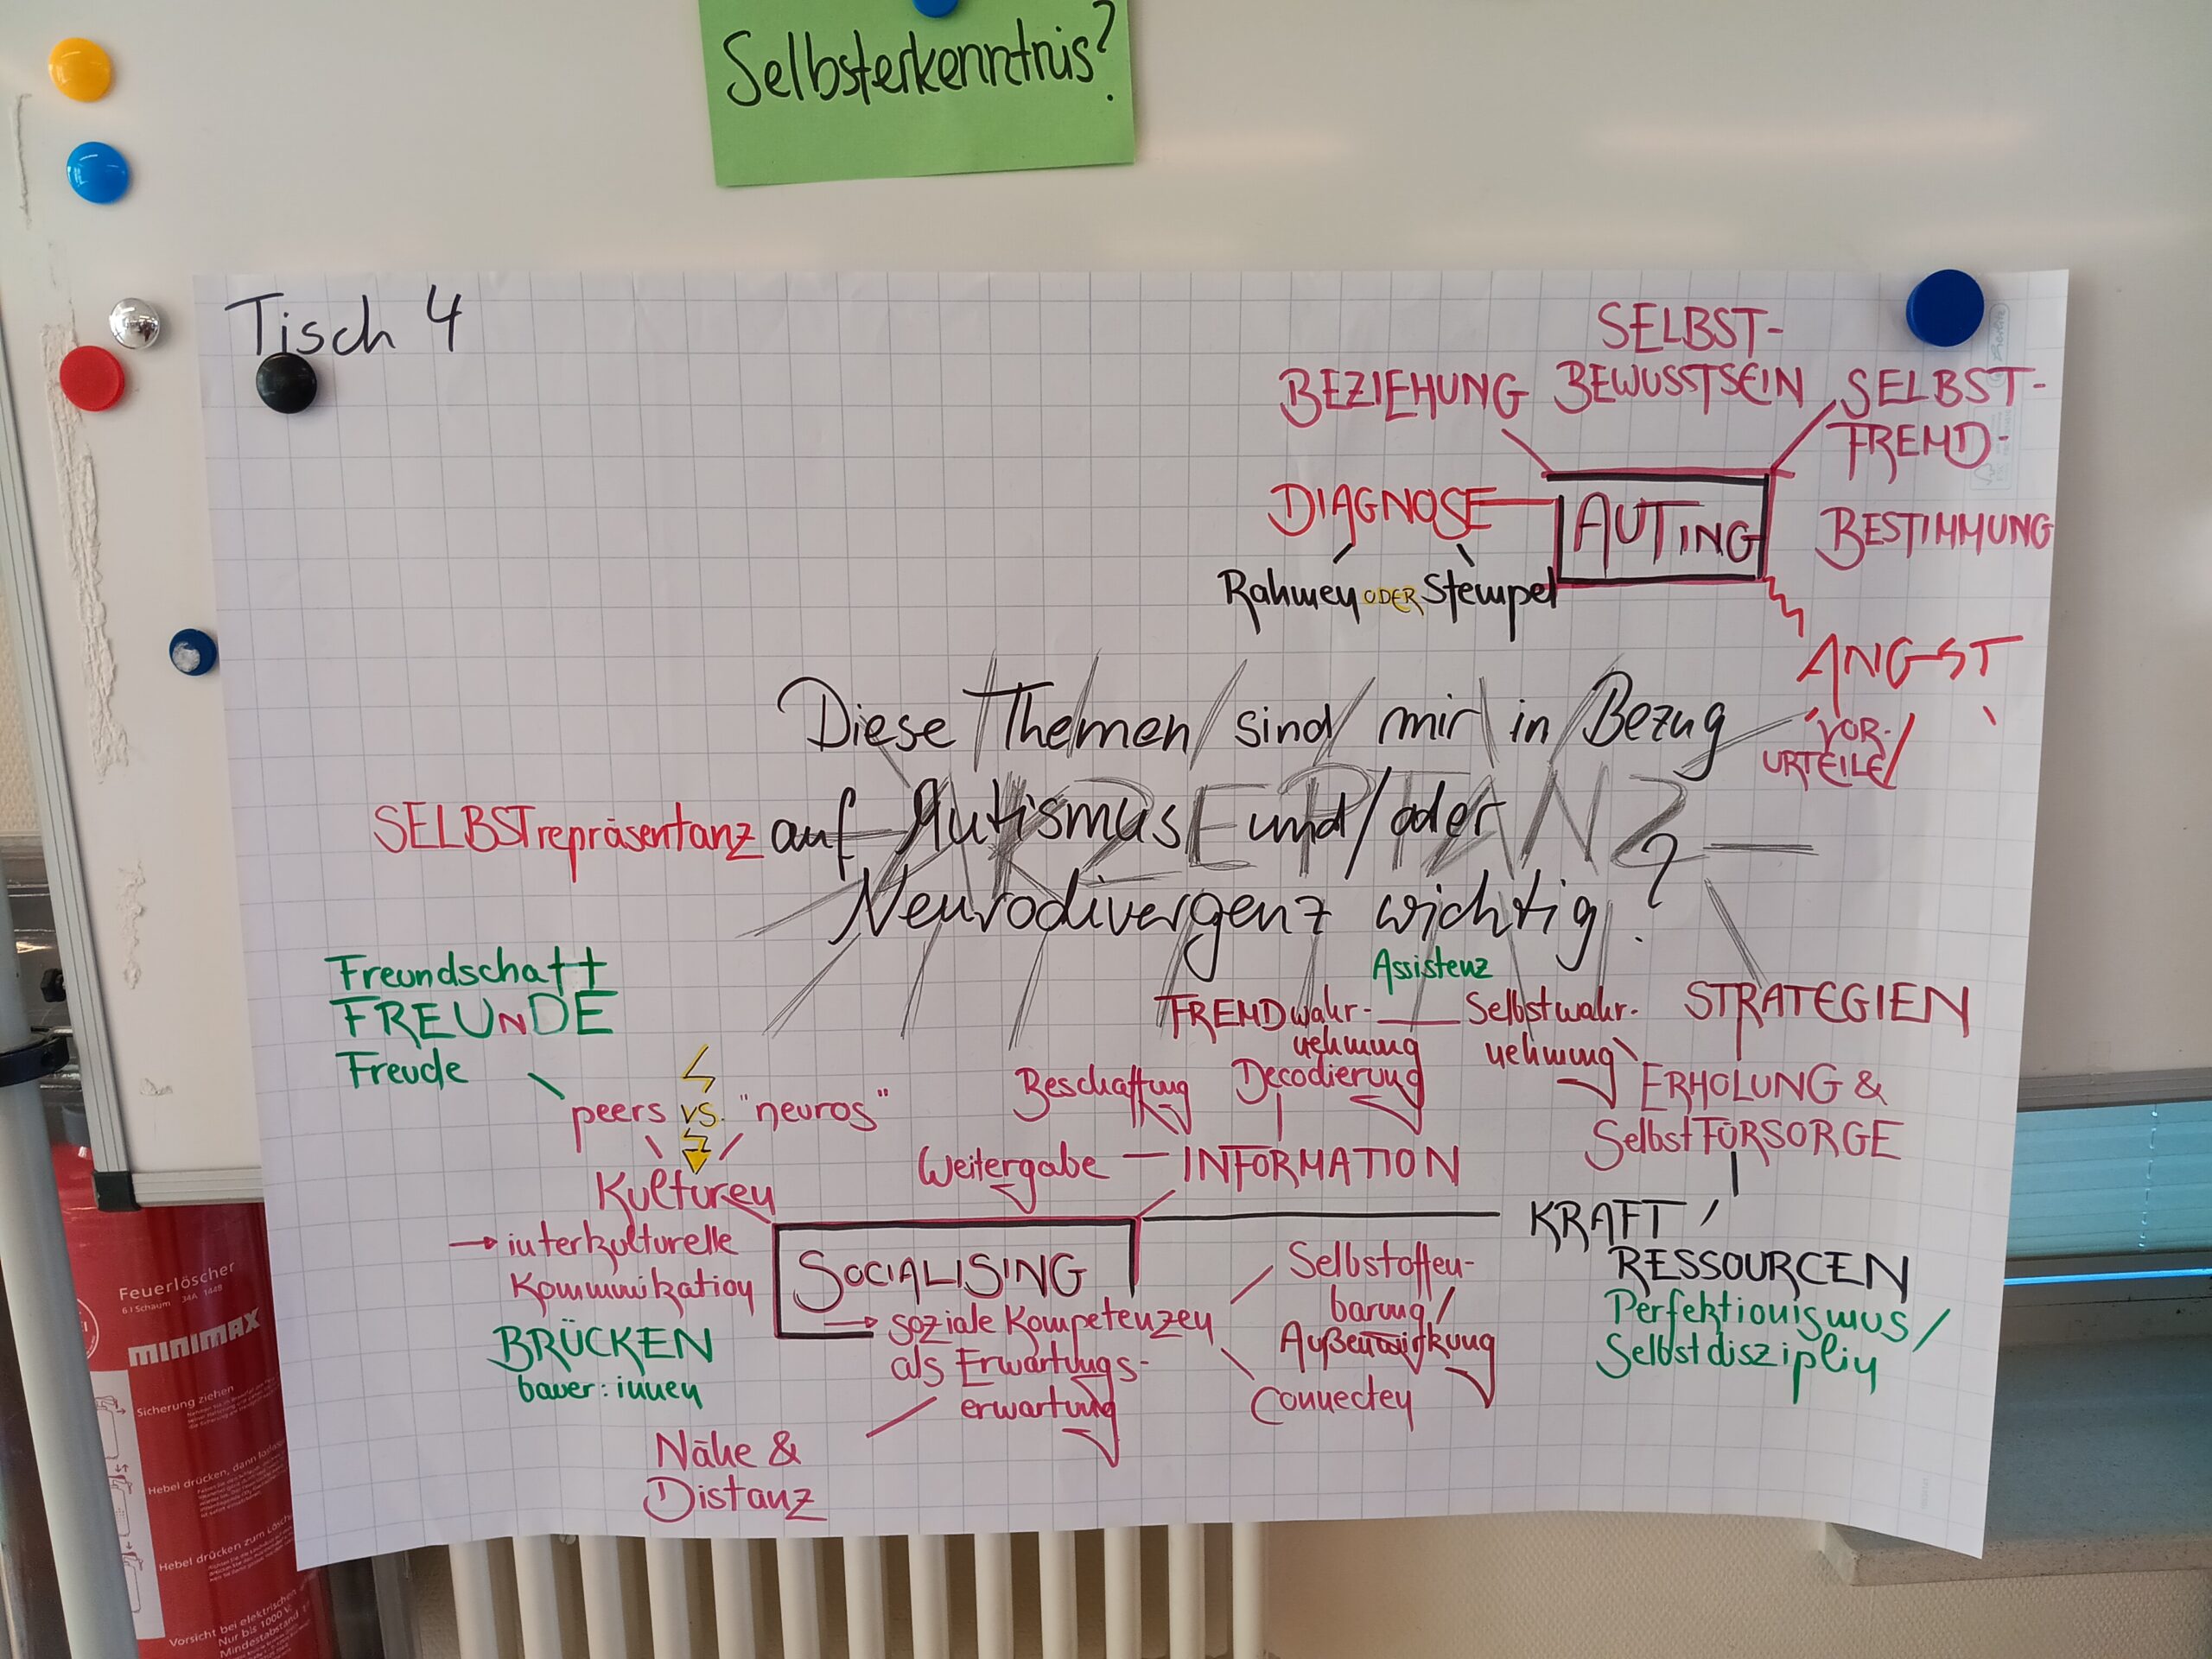 Selbsterkenntnis?
Tisch 4
SELBST-
BEZIEHUNG BEWUSSTSEIN SELBST-
FREMD-
BESTIMMUNG
DIAGNOSE
AUTING
Rahmen ODER Stempel
ANGST
VOR-
URTEILE
Diese Themen sind mir in Bezug
SELBSTrepräsentanz auf Autismus und/oder
Neurodivergenz wichtig?
AKZEPTANZ
Freundschaft
FREUNDE
Freude
peers vs. "neuros"
Kulturen
→ interkulturelle
Kommunikation
BRÜCKEN
bauer:innen
Assistenz
FREMDwahr-
nehmung
Selbstwahr-
nehmung
STRATEGIEN
Beschaffung
Decodierung
ERHOLUNG &
SelbstFÜRSORGE
Weitergabe
INFORMATION
KRAFT /
RESSOURCEN
Perfektionismus/
Selbstdisziplin
SOCIALISING
→ soziale Kompetenzen
als Erwartungs-
erwartung
Selbstoffen-
barung/
Außenwirkung
Connecten
Nähe &
Distanz
Feuerlöscher
6 l Schaum 34A 144B
MINIMAX
Sicherung ziehen
Hebel drücken, dann loslassen
Hebel drücken zum
Vorsicht bei elektrischen
Nur bis 1000 V;
Mindestabstand